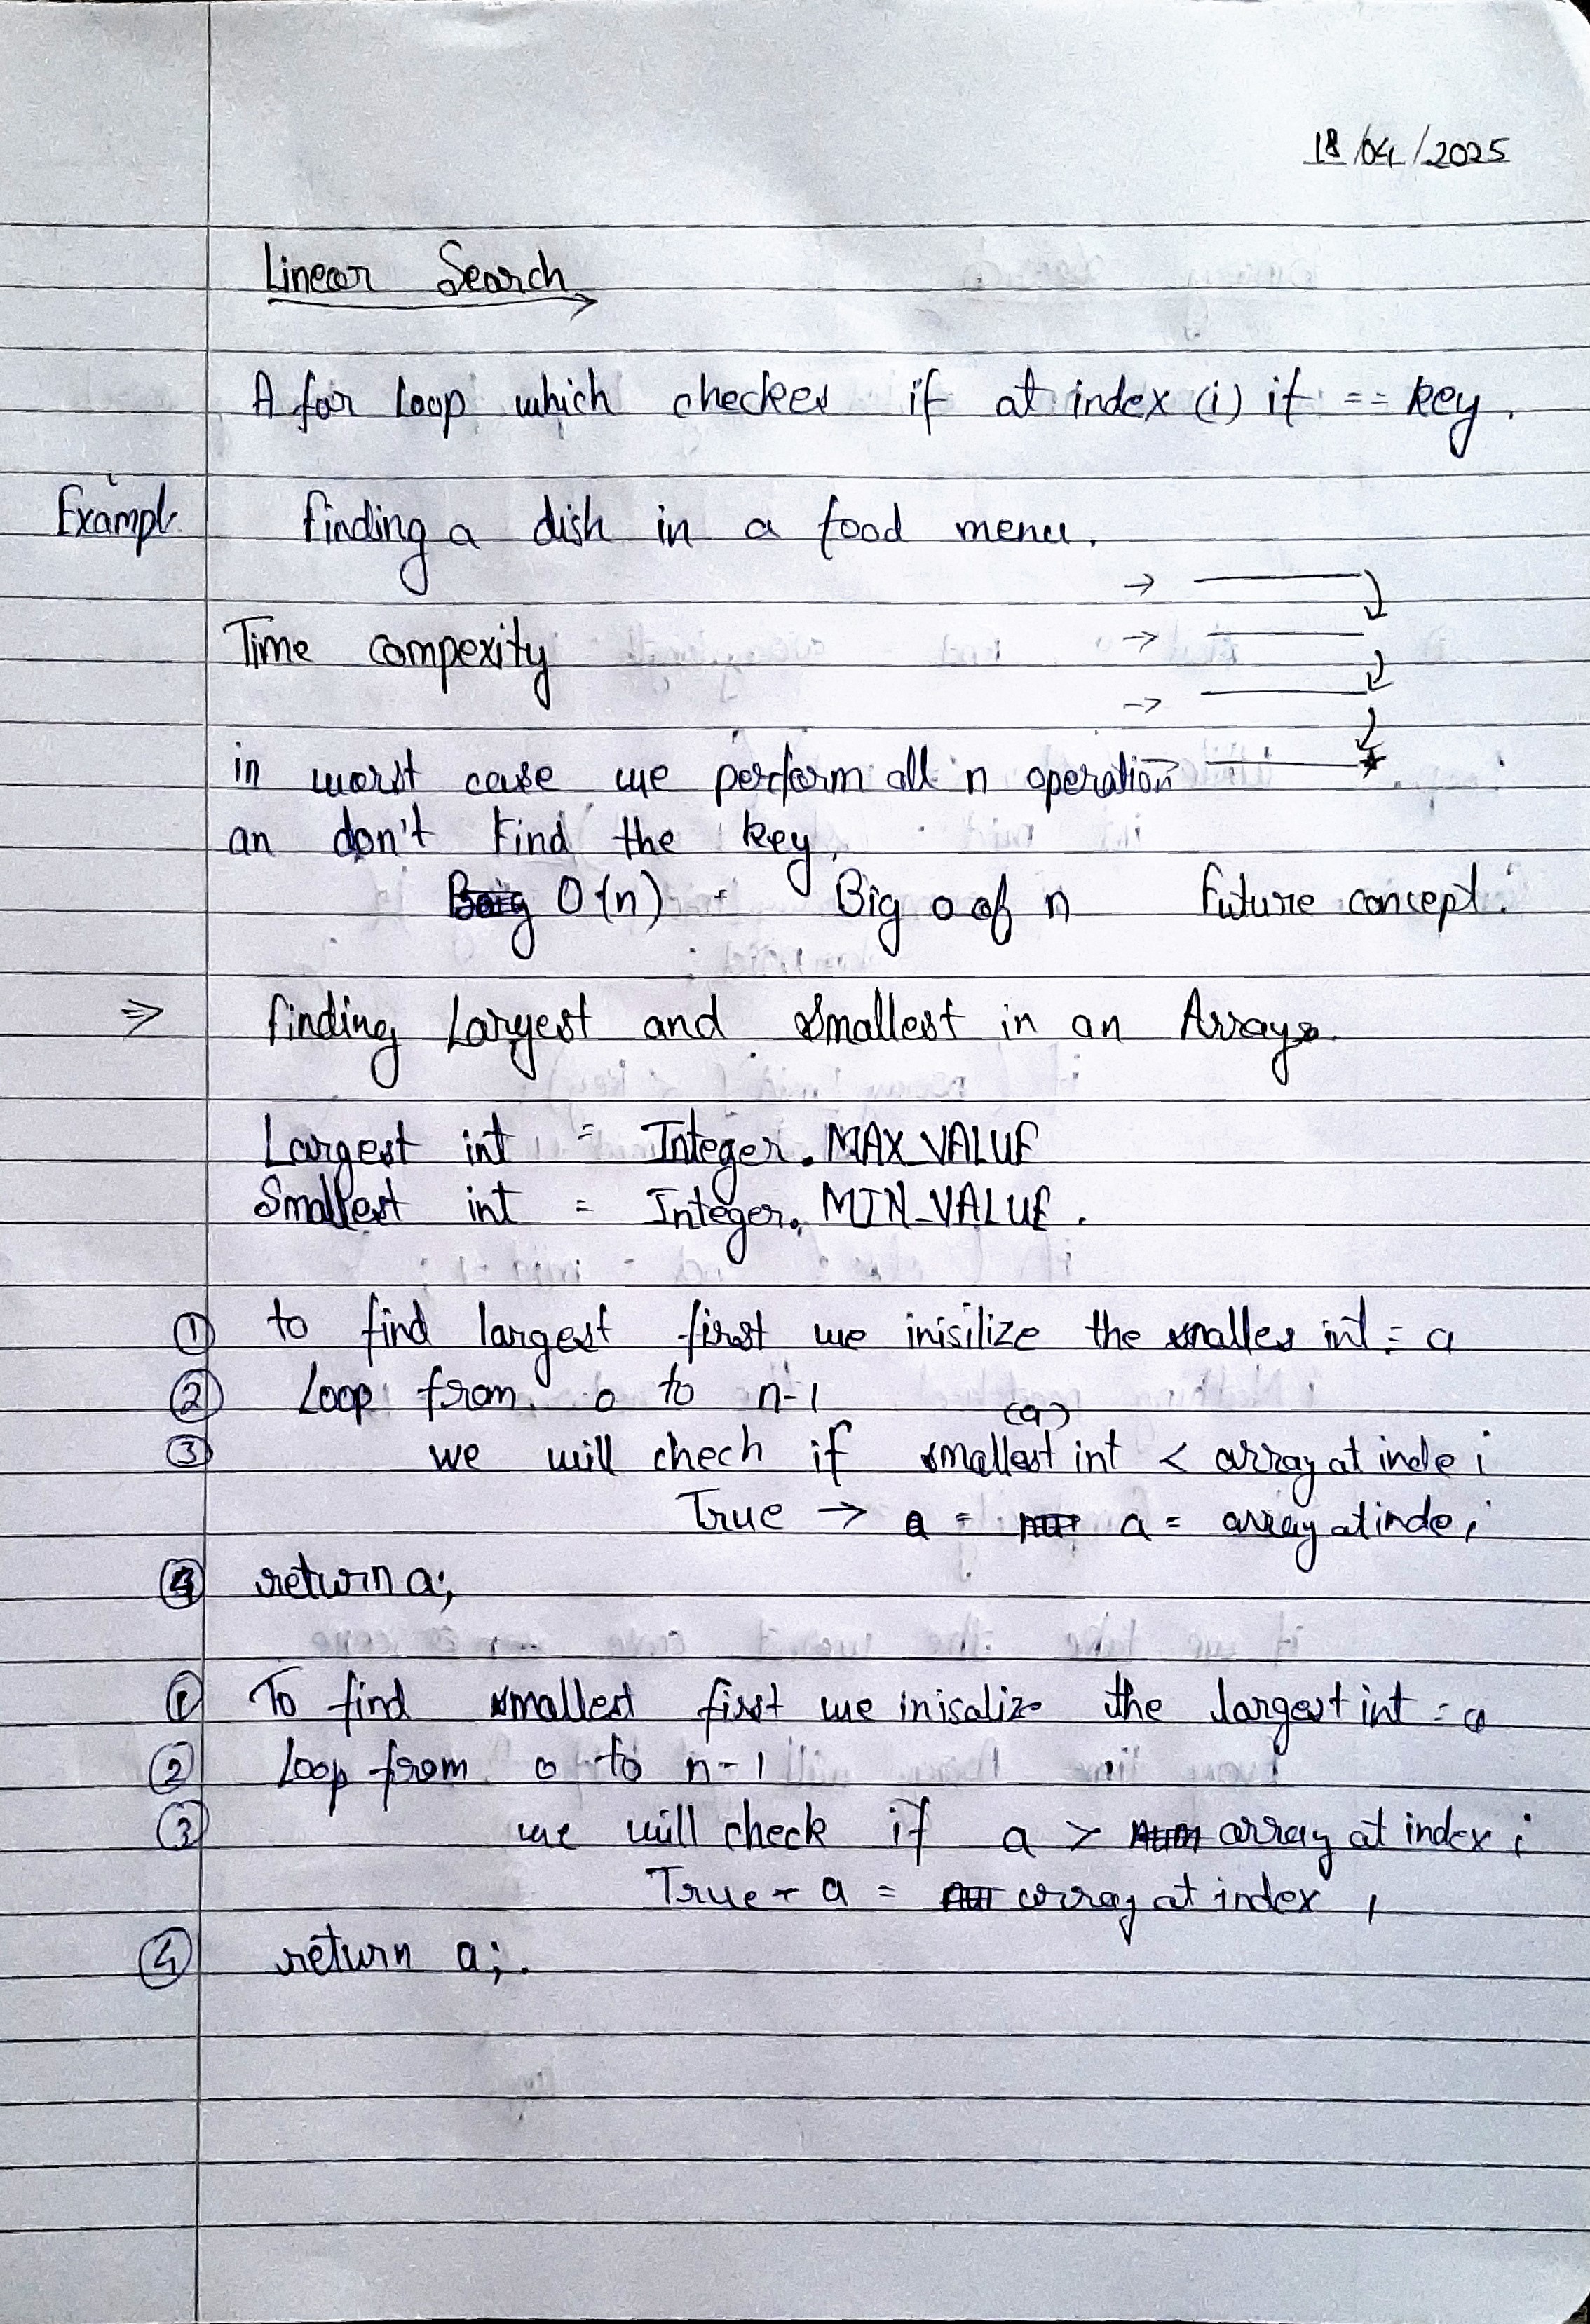 18/04/2025
Linear Search
A for loop which checkes if at index (i) if == key.
Exampl finding a dish in a food menu.
Time compexity
in worst case we perform all n operation
an don't find the key.
O(n) - Big o of n Future concept.
⇒ finding Largest and Smallest in an Arrays.
Largest int = Integer.MAX_VALUE
Smallest int = Integer.MIN_VALUE.
① to find largest first we inisilize the smalles int = a
② Loop from 0 to n-1
(a)
③ we will chech if smallest int < array at inde i
True → a = a = array at inde i
④ return a;
① To find smallest first we inisalize the largest int = a
② Loop from 0 to n-1
③ we will check if a > array at index i
True - a = array at index i
④ return a;.